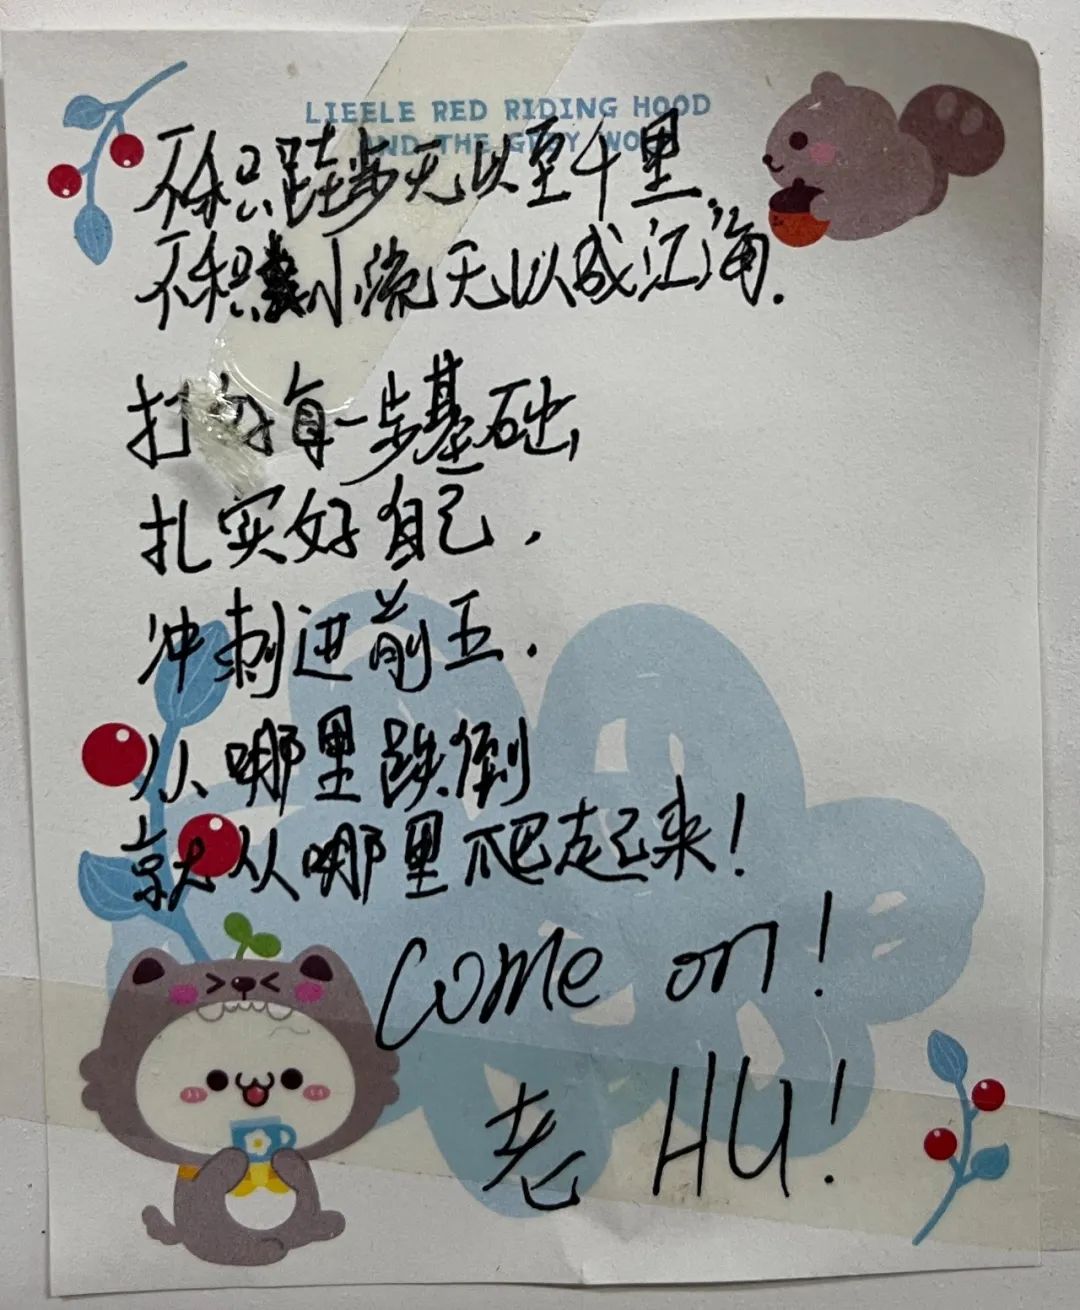 LIEELE RED RIDING HOOD
AND THE GREY WO
不积跬步无以至千里.
不积小流无以成江海.
打好每一步基础,
扎实好自己,
冲刺进前五.
从哪里跌倒
就从哪里爬起来!
Come on!
老HU!